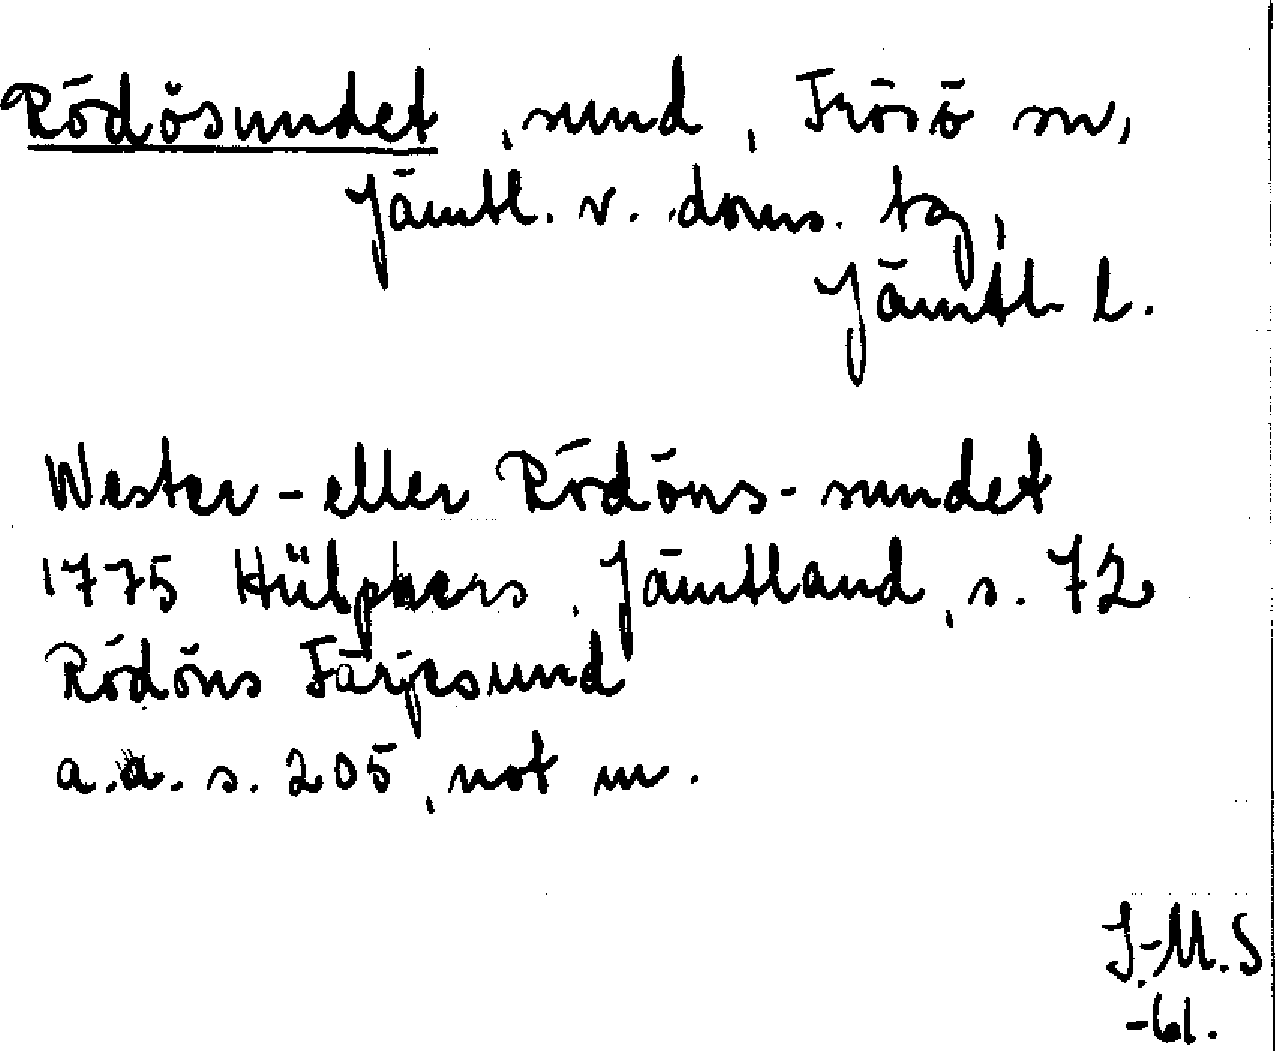 Rödösundet, sund, Frösö sn,
Jämtl. v. doms. tg,
Jämtl l.
Wester- eller Rödöns- sundet
1775 Hülphers, Jämtland, s. 72
Rödöns Färjesund
a.a. s. 205, not m.
I.-M.S
-61.